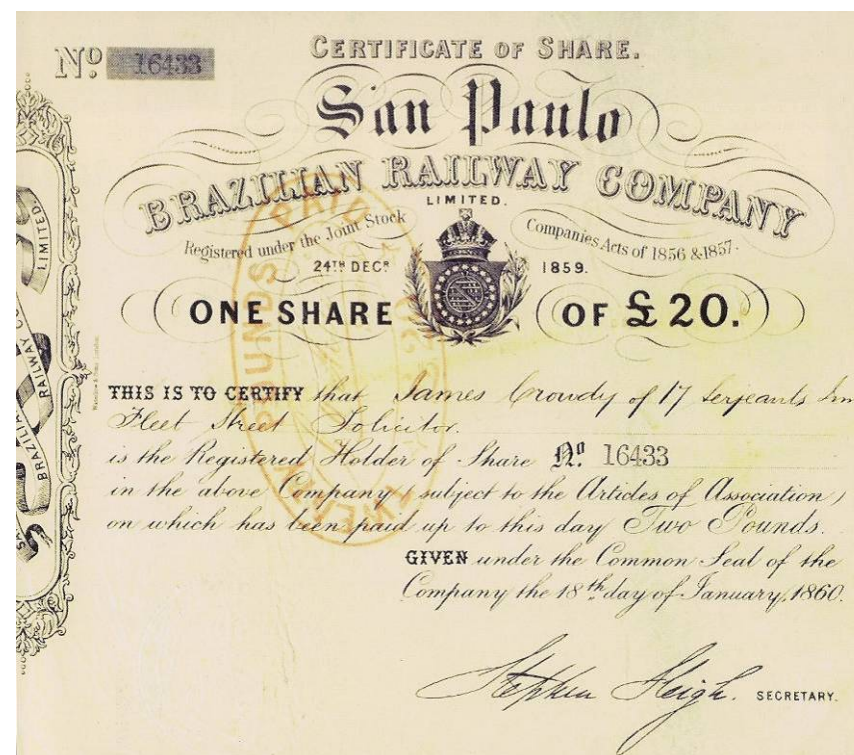 CERTIFICATE OF SHARE.
Nº 16433
San Paulo
BRAZILIAN RAILWAY COMPANY
LIMITED.
Registered under the Joint Stock Companies Acts of 1856 & 1857.
24TH DECR 1859.
ONE SHARE OF £20.
THIS IS TO CERTIFY that James Crowdy of 17 Serjeants Inn
Fleet Street Solicitor.
is the Registered Holder of Share Nº 16433
in the above Company (subject to the Articles of Association)
on which has been paid up to this day Two Pounds.
GIVEN under the Common Seal of the
Company the 18th day of January, 1860.
Stephen Sleigh. SECRETARY.
LIMITED.
BRAZILIAN RAILWAY
POUNDS PAID